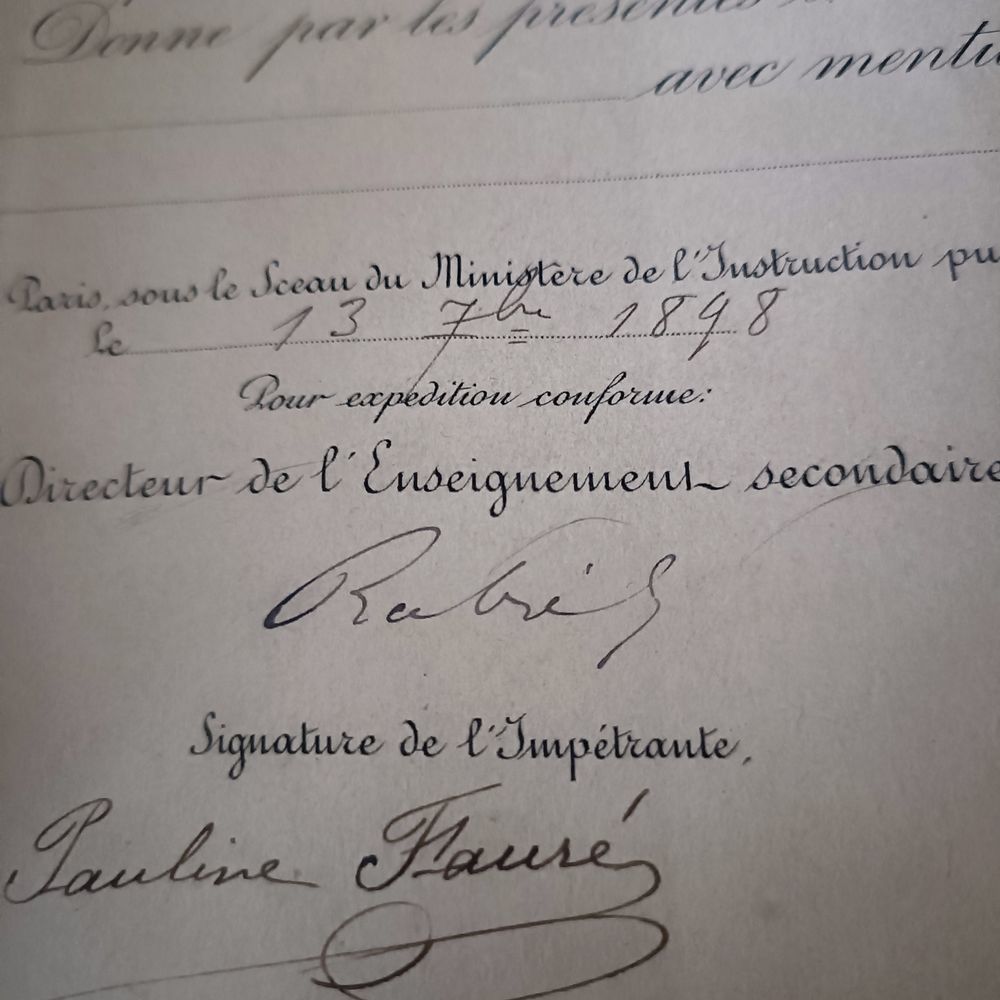 Donne par les présentes
avec menti
Paris, sous le Sceau du Ministère de l'Instruction pu
Le 13 7bre 1898
Pour expédition conforme:
Directeur de l'Enseignement secondaire
Signature de l'Impétrante,
Pauline Fauré